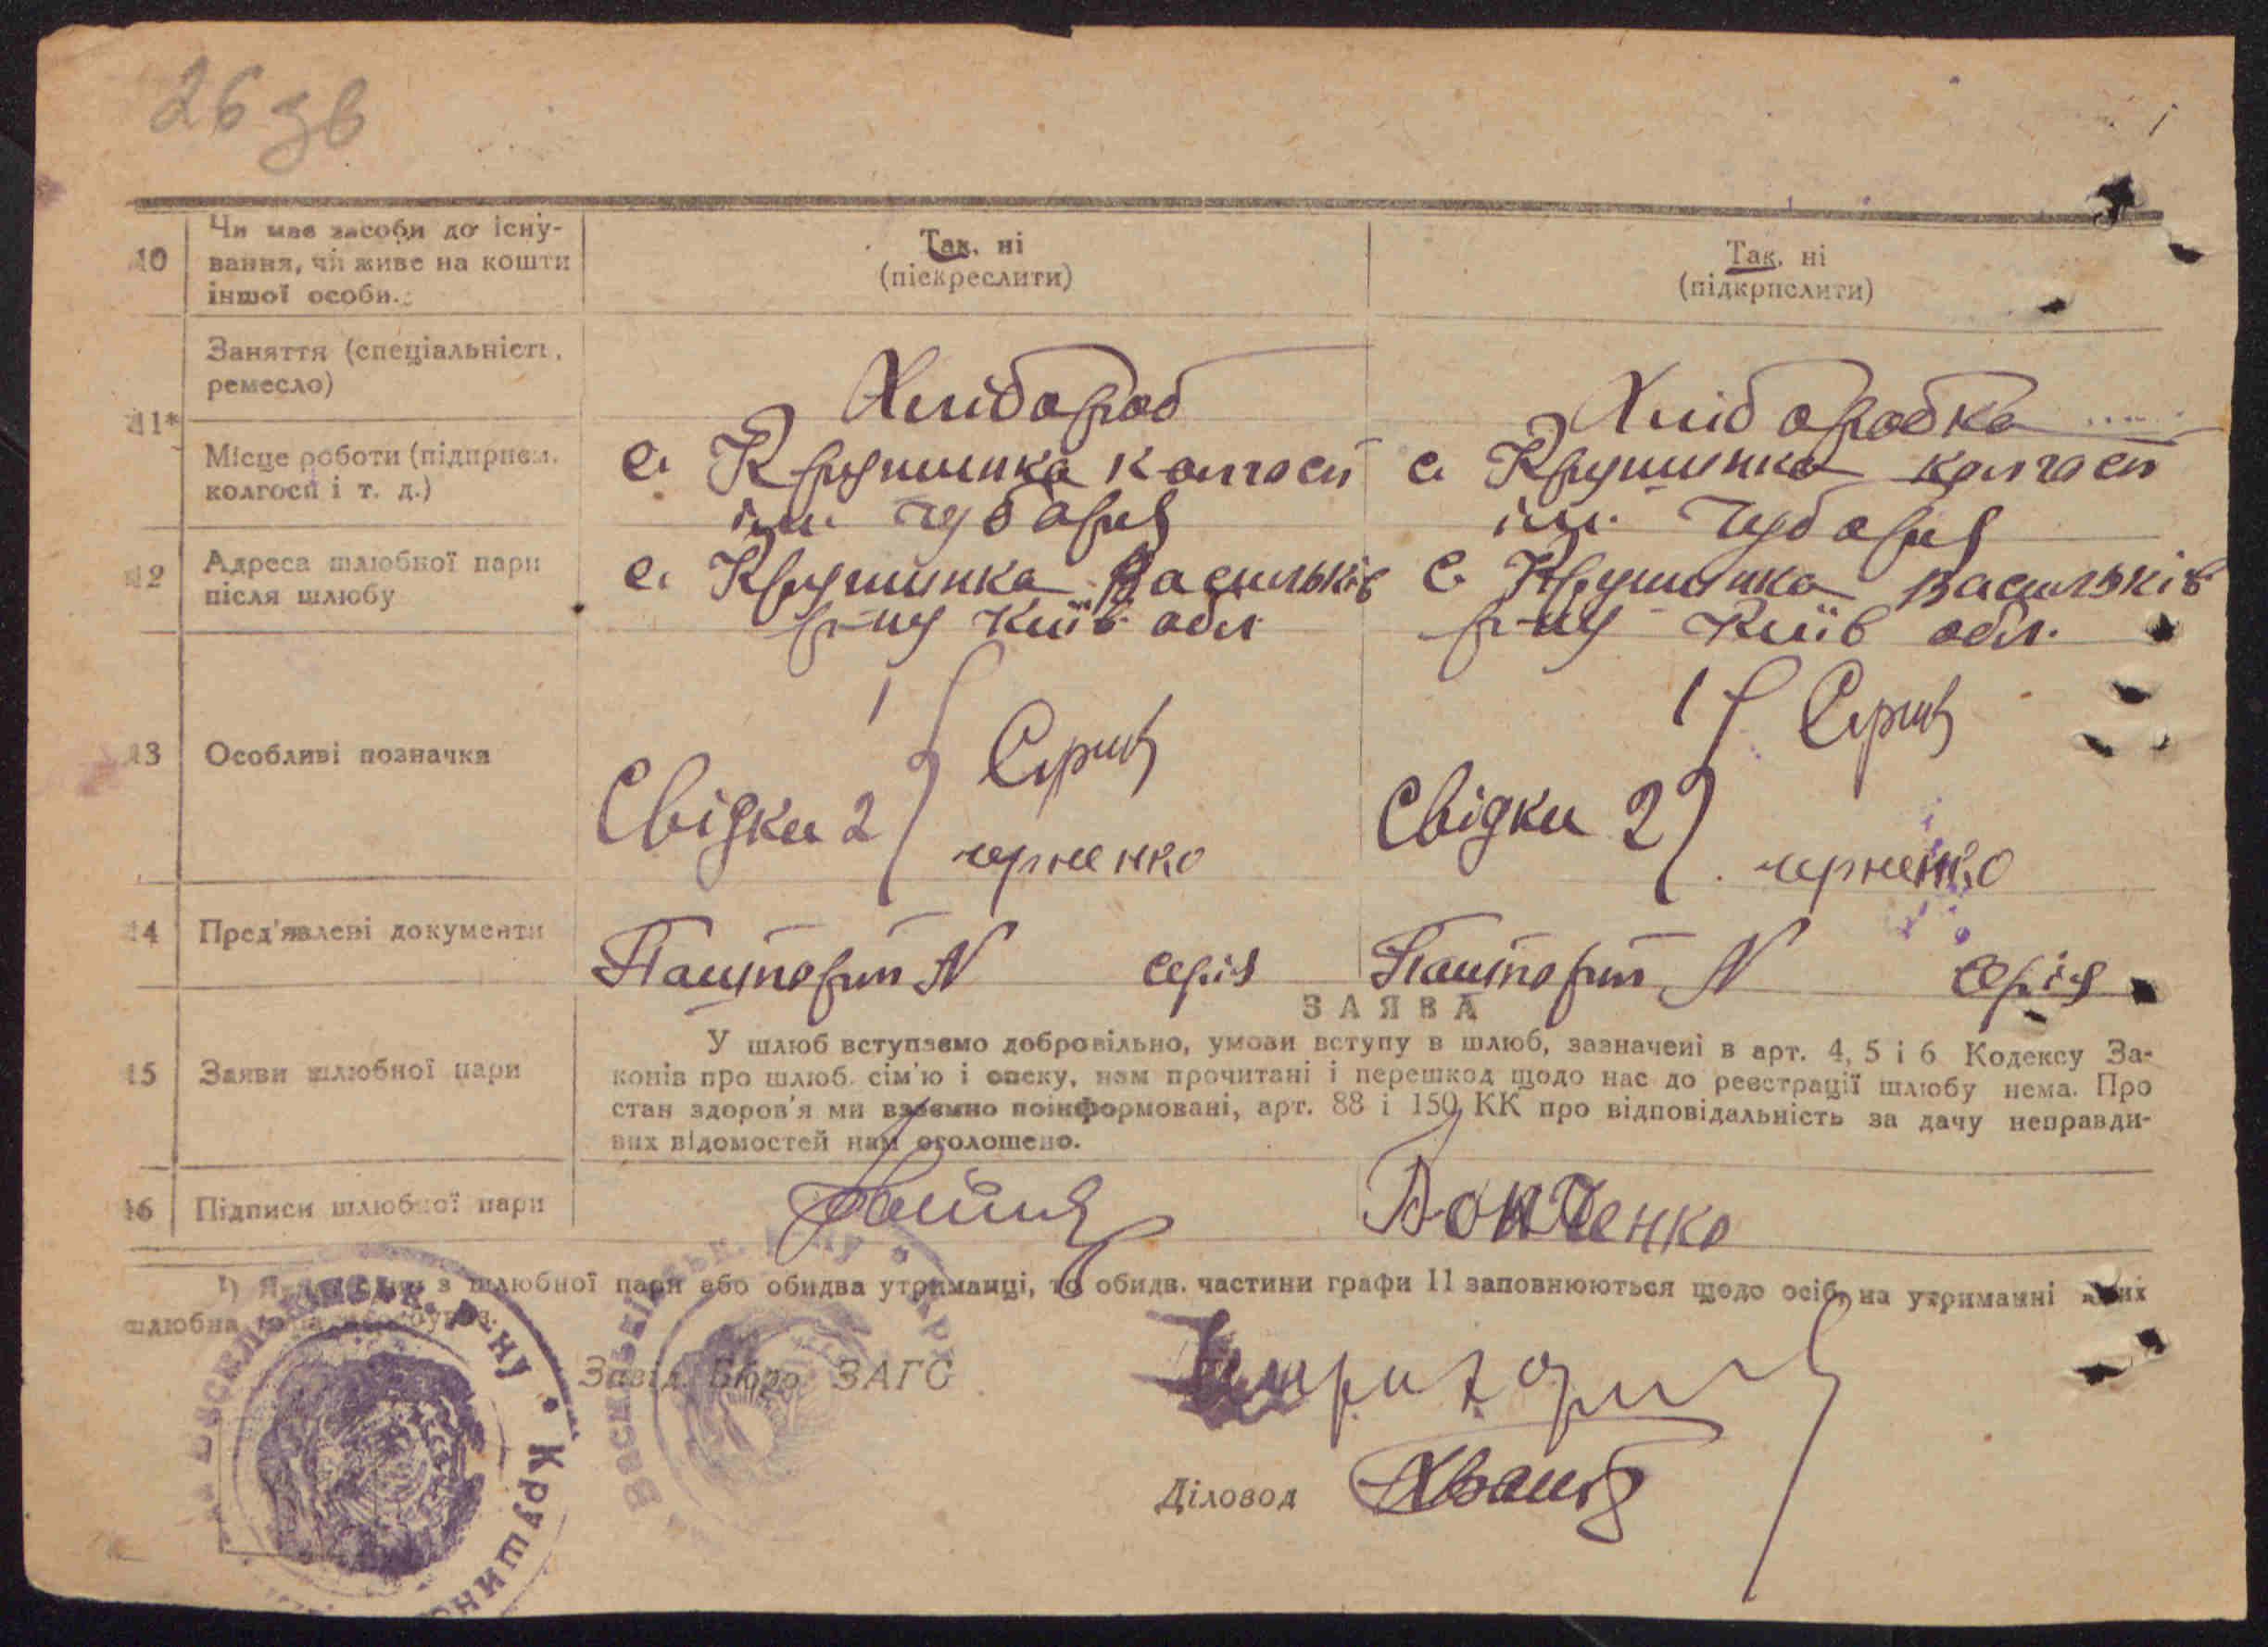 26 зв
10
Чи має засоби до існу-
вання, чи живе на кошти
іншої особи.
Так, ні
(піскреслити)
Так, ні
(підкрпслити)
11*
Заняття (спеціальність,
ремесло)
Хлібороб
Хліборобка
Місце роботи (підприєм.
колгосп і т. д.)
с. Крушинка колгосп
ім. Чубаря
с. Крушинка колгосп
ім. Чубаря
12
Адреса шлюбної пари
після шлюбу
с. Крушинка Васильків
р-ну Київ обл
с. Крушинка Васильків
р-ну Київ обл.
13
Особливі позначки
Свідки 1
2
черненко
Свідки 1
2
черненко
14
Пред'явлені документи
Пашпорт N серія
Пашпорт N серія
15
Заяви шлюбної пари
ЗАЯВА
У шлюб вступаємо добровільно, умови вступу в шлюб, зазначені в арт. 4, 5 і 6 Кодексу За-
конів про шлюб. сім'ю і опеку, нам прочитані і перешкод щодо нас до реєстрації шлюбу нема. Про
стан здоров'я ми взаємно поінформовані, арт. 88 і 150 КК про відповідальність за дачу неправди-
вих відомостей нам оголошено.
16
Підписи шлюбної пари
Вонченко
з шлюбної пари або обидва утриманці, то обидв. частини графи 11 заповнюються щодо осіб, на утриманні яких
шлюбна
Завід. Бюро ЗАГС
Діловод
Васильківськ. р-ну • Крушин
Васильківськ. р-ну • Кру